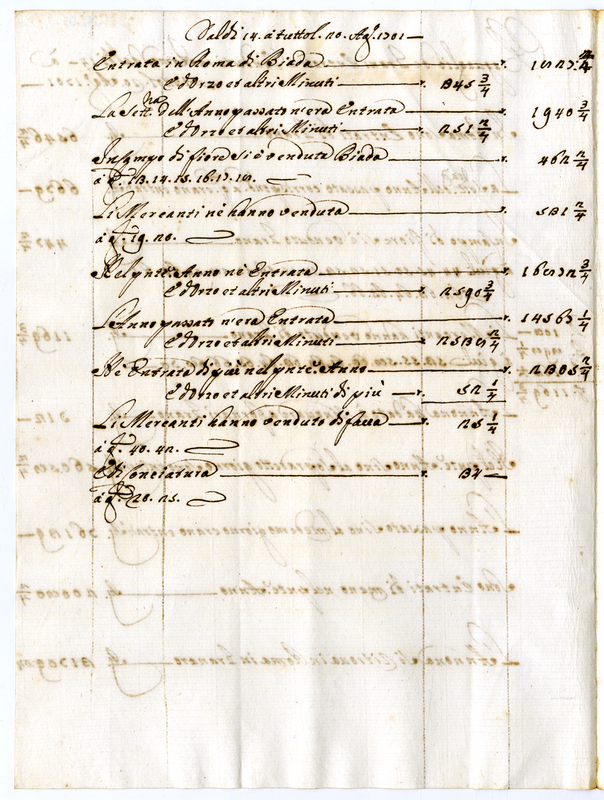 Dalli 14. à tutto l. 20. Agt. 1701
Entrata in Roma di Biada r. 1827. 2/4
Ed Orzo et altri Minuti r. 345 3/4
La Sett.na dell'Anno passato n'era Entrata r. 1940 3/4
Ed Orzo et altri Minuti r. 251 2/4
In Campo di fiore si è venduta Biada r. 462 2/4
à q. 13. 14. 15. 16. 17. 18.
Li Mercanti nè hanno venduta r. 531 2/4
à q. 19. 20.
Nel pnte. Anno nè Entrata r. 16872 3/4
Ed Orzo et altri Minuti r. 2590 3/4
L'Anno passato n'era Entrata r. 14567 1/4
Ed Orzo et altri Minuti r. 2538 2/4
Nè Entrata di più nel pnte. Anno r. 2305 2/4
Ed Orzo et altri Minuti di più r. 52 1/4
Li Mercanti hanno venduto di faua r. 25 1/4
à q. 40. 42.
E di Conciatura r. 34
à q. 20. 25.